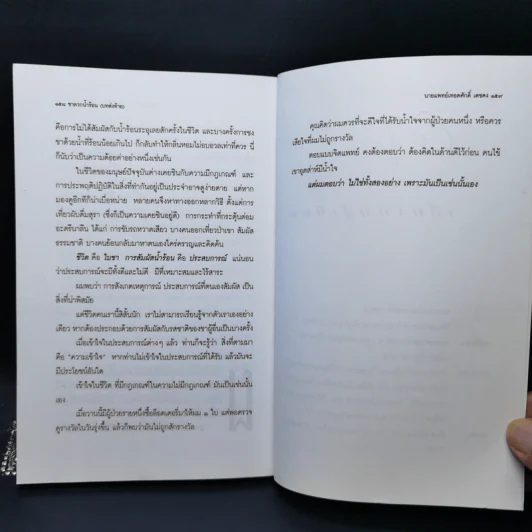 ๑๕๘ ชาลวกน้ำร้อน (บทส่งท้าย)
คือการไม่ได้สัมผัสกับน้ำร้อนระอุเลยสักครั้งในชีวิต และบางครั้งการชง
ชาด้วยน้ำที่ร้อนน้อยเกินไป ก็กลับทำให้กลิ่นหอมไม่อบอวลเท่าที่ควร นี่
ก็นับว่าเป็นความด้อยค่าอย่างหนึ่งเช่นกัน
ในชีวิตของมนุษย์ปัจจุบันต่างเคยชินกับความมีกฎเกณฑ์ และ
การประพฤติปฏิบัติในสิ่งที่ทำกันอยู่เป็นประจำอาจดูง่ายดาย แต่หาก
มองดูอีกทีก็น่าเบื่อหน่าย หลายคนจึงหาทางออกหลากวิธี ตั้งแต่การ
เที่ยวผับดื่มสุรา (ซึ่งก็เป็นความเคยชินอยู่ดี) การกระทำที่กระตุ้นต่อม
อะดรีนาลีน ได้แก่ การขับรถหวาดเสียว บางคนออกเที่ยวป่าเขา สัมผัส
ธรรมชาติ บางคนย้อนกลับมาหาตนเองใคร่ครวญและคิดค้น
ชีวิต คือ ใบชา การสัมผัสน้ำร้อน คือ ประสบการณ์ แน่นอน
ว่าประสบการณ์จะมีทั้งดีและไม่ดี มีทั้งเหมาะสมและไร้สาระ
ผมพบว่า การสังเกตเหตุการณ์ ประสบการณ์ที่ตนเองสัมผัส เป็น
สิ่งที่น่าพิสมัย
แต่ชีวิตคนเรานี้สั้นนัก เราไม่สามารถเรียนรู้จากตัวเราเองอย่าง
เดียว หากต้องประกอบด้วยการสัมผัสกับรสชาติของชาผู้อื่นเป็นบางครั้ง
เมื่อเข้าใจในประสบการณ์ต่างๆ แล้ว ท่านก็จะรู้ว่า สิ่งที่ตามมา
คือ “ความเข้าใจ” หากท่านไม่เข้าใจในประสบการณ์ที่ได้รับ แล้วมันจะ
มีประโยชน์อันใด
เข้าใจในชีวิต ที่มีกฎเกณฑ์ในความไม่มีกฎเกณฑ์ มันเป็นเช่นนั้น
เอง
เมื่อวานนี้มีผู้ป่วยรายหนึ่งซื้อล็อตเตอรี่มาให้ผม ๒ ใบ แต่พอตรวจ
ดูรางวัลในวันรุ่งขึ้น แล้วก็พบว่ามันไม่ถูกสักรางวัล
นายแพทย์เทอดศักดิ์ เดชคง ๑๕๙
คุณคิดว่าผมควรที่จะดีใจที่ได้รับน้ำใจจากผู้ป่วยคนหนึ่ง หรือควร
เสียใจที่ผมไม่ถูกรางวัล
ตอบแบบจิตแพทย์ คงต้องตอบว่า ต้องคิดในด้านดีไว้ก่อน คนไข้
เขาอุตส่าห์มีน้ำใจ
แต่ผมตอบว่า ไม่ใช่ทั้งสองอย่าง เพราะมันเป็นเช่นนั้นเอง